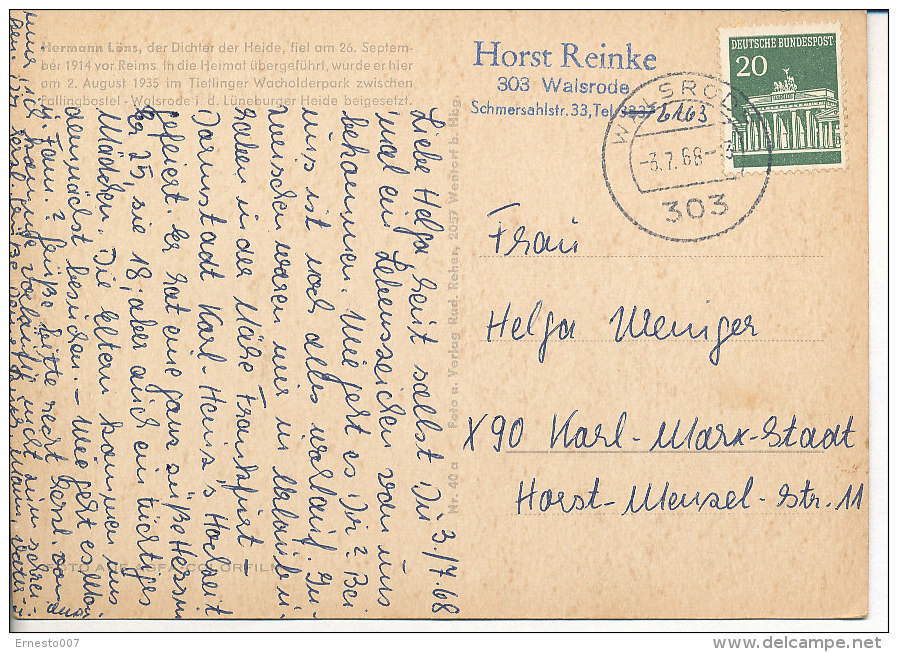 Hermann Löns, der Dichter der Heide, fiel am 26. Septem-
ber 1914 vor Reims. In die Heimat übergeführt, wurde er hier
am 2. August 1935 im Tietlinger Wacholderpark zwischen
Fallingbostel - Walsrode i. d. Lüneburger Heide beigesetzt.
Horst Reinke
303 Walsrode
Schmersahlstr. 33, Tel. 3837
6163
DEUTSCHE BUNDESPOST
20
WALSRODE
-3.7.68-
303
3./7.68
Liebe Helga heut sollst Du
mal ein Lebenszeichen von uns
bekommen. Wie geht es Dir? Bei
uns ist noch alles wohlauf. In-
zwischen waren wir in Urlaub u.
haben in der Nähe Frankfurt -
Darmstadt Karl-Heinz's Hochzeit
gefeiert. Er hat eine ganz süße Hessin
Er 25, sie 18, aber auch ein tüchtiges
Mädchen. Die Eltern kommen uns
demnächst besuchen. - Wie geht es
u. Fam.? Grüße bitte recht herzl. von
Nr. 40 a - Foto u. Verlag Rud. Reher, 2057 Wentorf b. Hbg.
FOTO AUF AGFACOLORFILM
Frau
Helga Weniger
X90 Karl-Marx-Stadt
Horst-Menzel-Str. 11
Ernesto007
www.delcampe.net